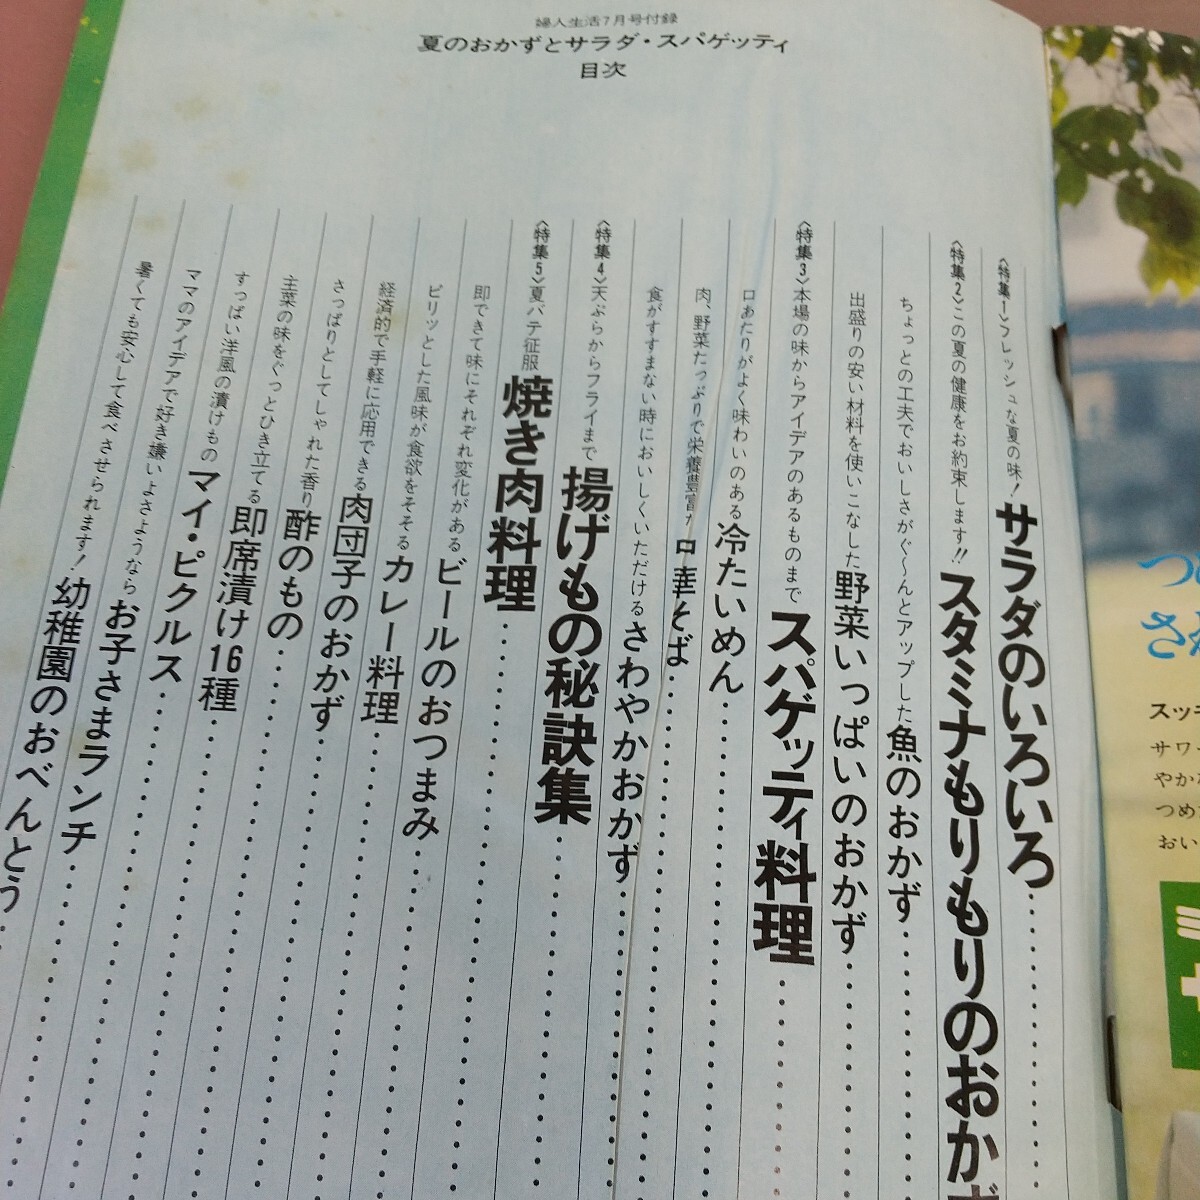 婦人生活7月号付録
夏のおかずとサラダ・スパゲッティ
目次
〈特集1〉フレッシュな夏の味！ サラダのいろいろ
〈特集2〉この夏の健康をお約束します!! スタミナもりもりのおかず
ちょっとの工夫でおいしさがぐ〜んとアップした 魚のおかず
出盛りの安い材料を使いこなした 野菜いっぱいのおかず
〈特集3〉本場の味からアイデアのあるものまで スパゲッティ料理
口あたりがよく味わいのある 冷たいめん
肉、野菜たっぷりで栄養豊富な 中華そば
食がすすまない時においしくいただける さわやかおかず
〈特集4〉天ぷらからフライまで 揚げもの秘訣集
〈特集5〉夏バテ征服 焼き肉料理
即できて味にそれぞれ変化がある ビールのおつまみ
ピリッとした風味が食欲をそそる カレー料理
経済的で手軽に応用できる 肉団子のおかず
さっぱりとしてしゃれた香り 酢のもの
主菜の味をぐっとひき立てる 即席漬け16種
すっぱい洋風の漬けもの マイ・ピクルス
ママのアイデアで好き嫌いよさようなら お子さまランチ
暑くても安心して食べさせられます！ 幼稚園のおべんとう
スッキ
サワー
やかな
つめ
おい